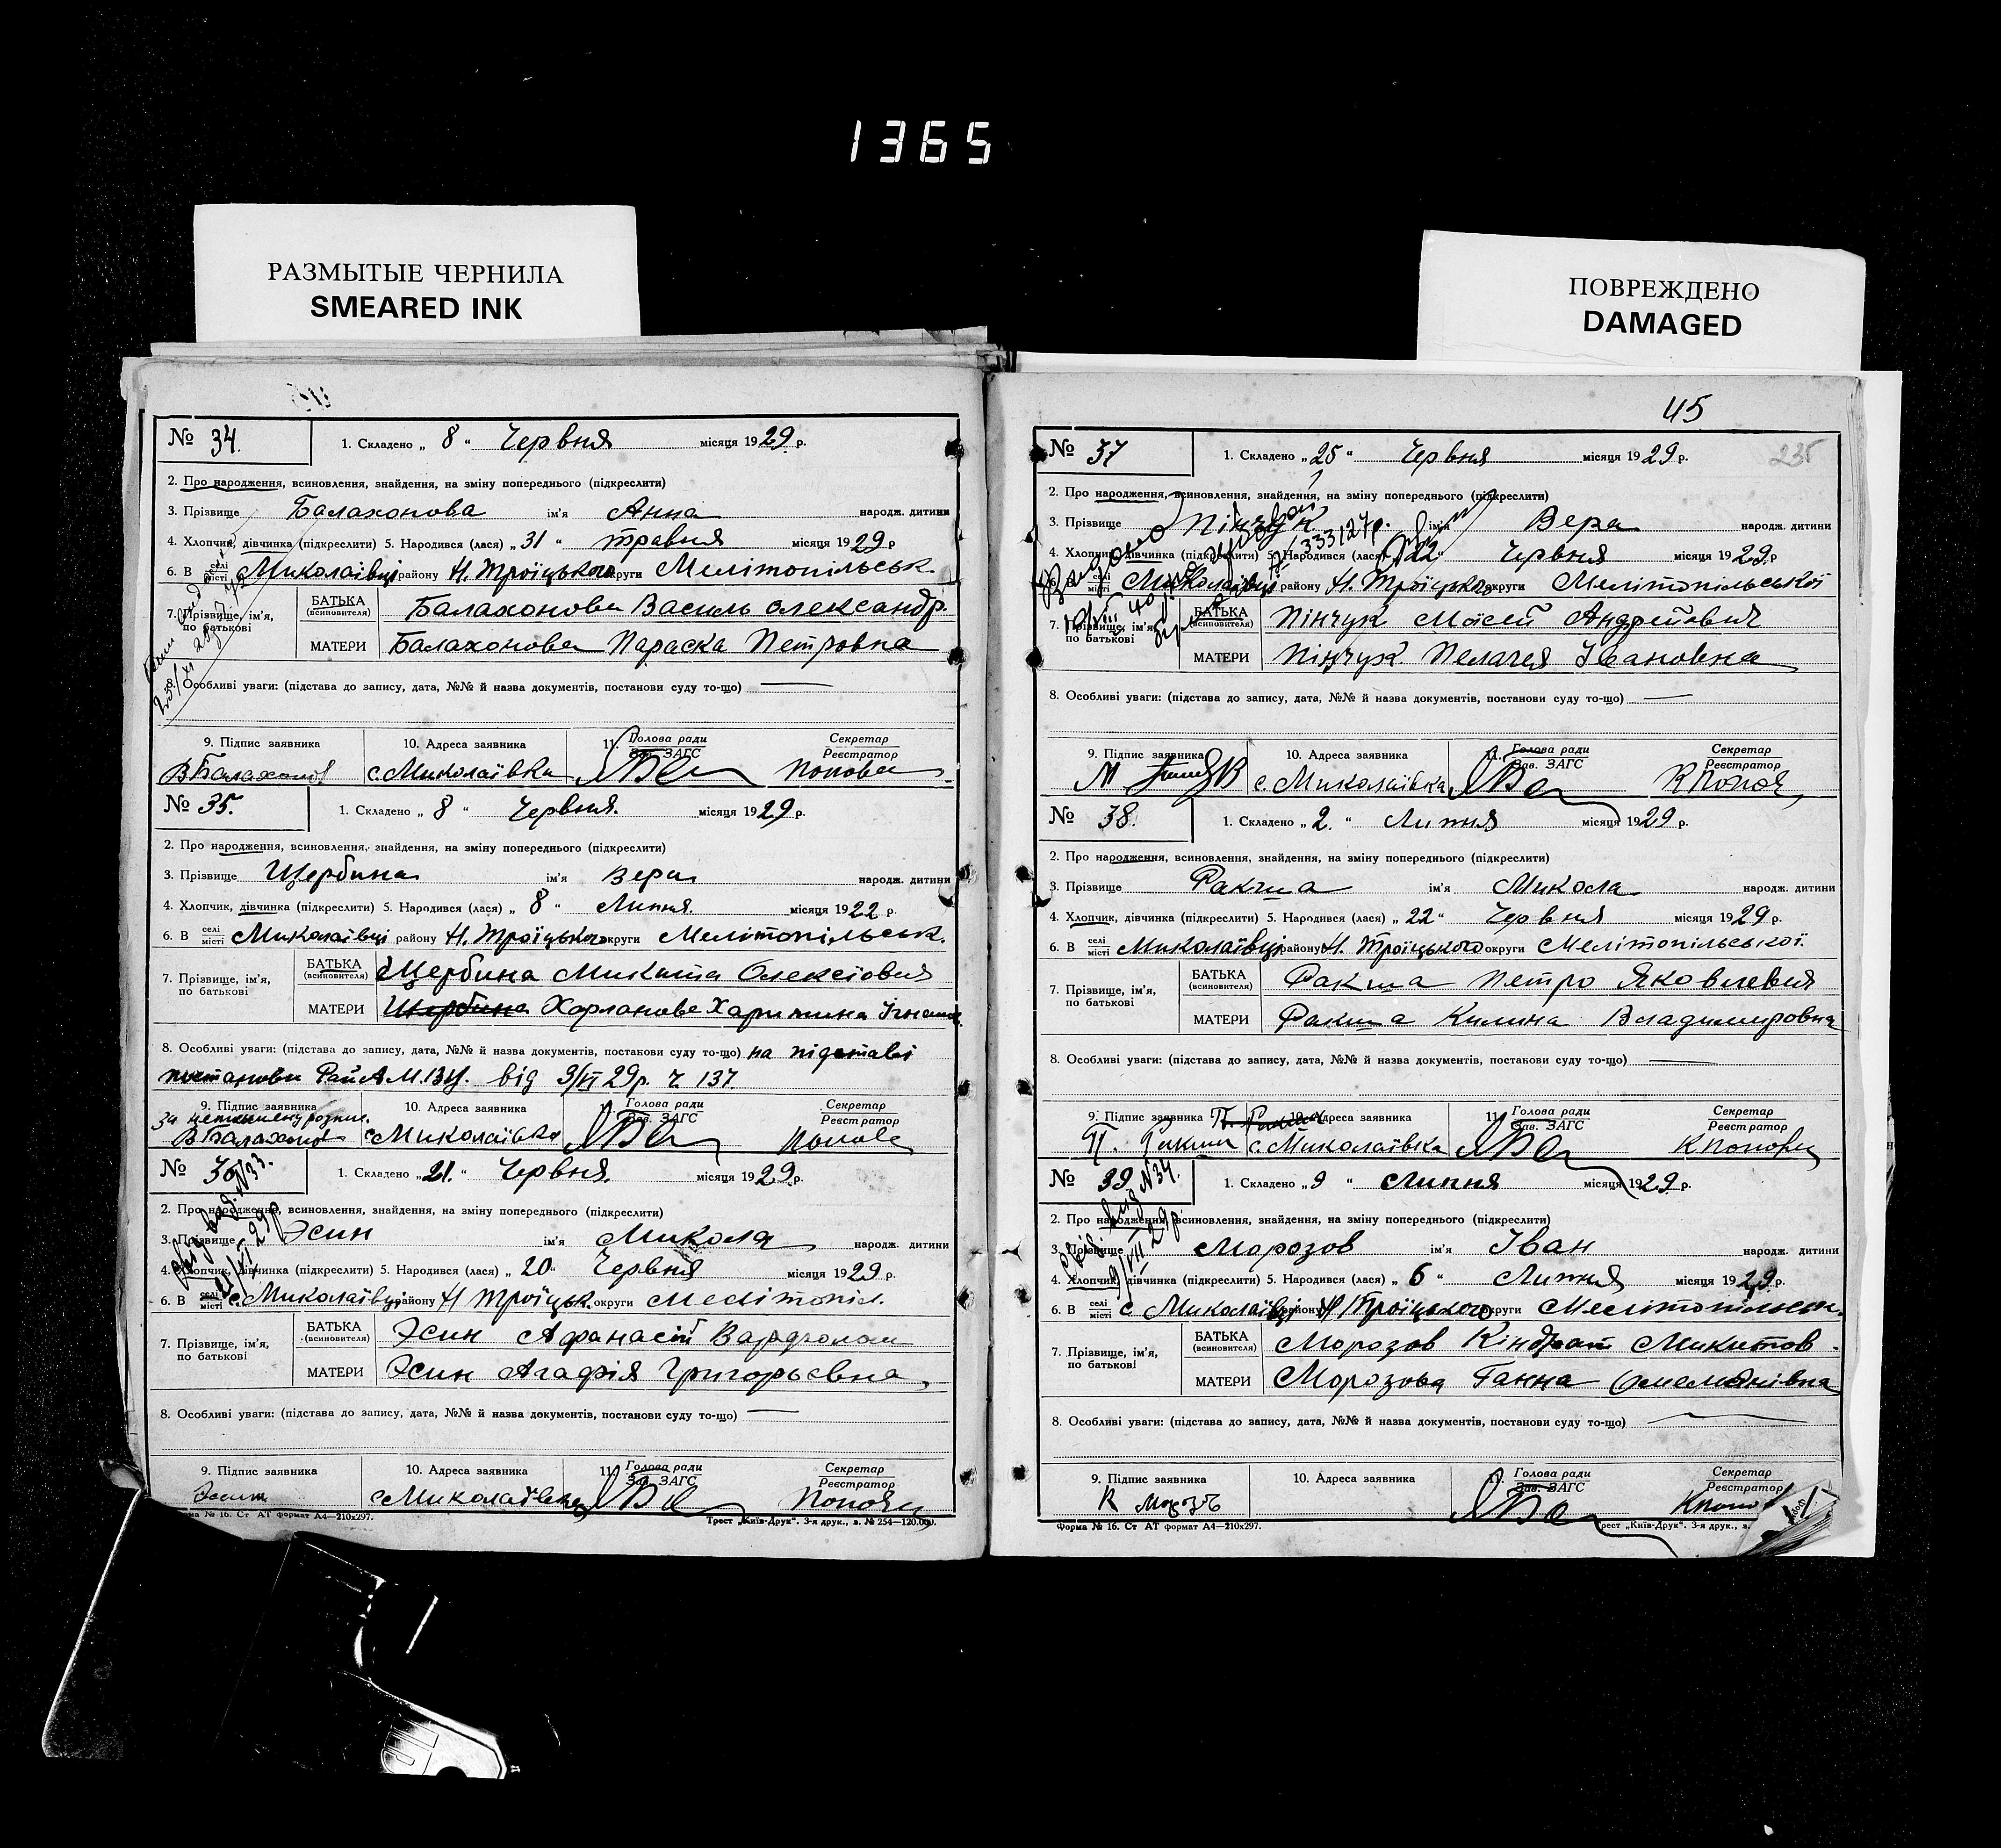 1365
РАЗМЫТЫЕ ЧЕРНИЛА
SMEARED INK
ПОВРЕЖДЕНО
DAMAGED
№ 34. 1. Складено „ 8 “ Червня місяця 1929 р.
2. Про народження, всиновлення, знайдення, на зміну попереднього (підкреслити)
3. Прізвище Балахонова ім'я Анна народж. дитини
4. Хлопчик, дівчинка (підкреслити) 5. Народився (лася) „ 31 “ травня місяця 1929 р
6. В селі місті Миколаївці району Н. Троїцького округи Мелітопільськ.
7. Прізвище, ім'я, по батькові БАТЬКА (всиновителя) Балахонови Василь Олександр.
МАТЕРИ Балахонова Параска Петровна
8. Особливі уваги: (підстава до запису, дата, №№ й назва документів, постанови суду то-що)
9. Підпис заявника 10. Адреса заявника 11. Голова ради Зав. ЗАГС Секретар Реєстратор
В Балахонов с. Миколаївка Попова
№ 35. 1. Складено „ 8 “ Червня. місяця 1929 р.
2. Про народження, всиновлення, знайдення, на зміну попереднього (підкреслити)
3. Прізвище Щербина ім'я Вера народж. дитини
4. Хлопчик, дівчинка (підкреслити) 5. Народився (лася) „ 8 “ Липня. місяця 1922 р.
6. В селі місті Миколаївці району Н. Троїцького округи Мелітопільськ.
7. Прізвище, ім'я, по батькові БАТЬКА (всиновителя) Щербина Микита Олексіович
МАТЕРИ Щербина Харланова Харитина
8. Особливі уваги: (підстава до запису, дата, №№ й назва документів, постанови суду то-що) на підставі
постанови від 3/VI 29р. ч 137.
9. Підпис заявника 10. Адреса заявника 11. Голова ради Зав. ЗАГС Секретар Реєстратор
за неписьмену розпис.
В Балахонов с Миколаївка Попова
№ 36 1. Складено „ 21. “ Червня. місяця 1929 р.
2. Про народження, всиновлення, знайдення, на зміну попереднього (підкреслити)
3. Прізвище Эсин ім'я Микола народж. дитини
4. Хлопчик, дівчинка (підкреслити) 5. Народився (лася) „ 20. Червня місяця 1929 р.
6. В селі місті с. Миколаївці району Н Троїцьк. округи Мелітопіл.
7. Прізвище, ім'я, по батькові БАТЬКА (всиновителя) Эсин Афанасій
МАТЕРИ Эсин Агафія Григорьевна
8. Особливі уваги: (підстава до запису, дата, №№ й назва документів, постанови суду то-що)
9. Підпис заявника 10. Адреса заявника 11. Голова ради Зав. ЗАГС Секретар Реєстратор
Форма № 16. Ст АТ формат А4—210х297. Трест „Київ-Друк“. 3-я друк., в. № 254—120.000.
45
235
№ 37 1. Складено „ 25 “ Червня місяця 1929 р.
2. Про народження, всиновлення, знайдення, на зміну попереднього (підкреслити)
3. Прізвище Пінчук ім'я Вера народж. дитини
4. Хлопчик, дівчинка (підкреслити) 5. Народився (лася) „ 22 “ Червня місяця 1929 р.
6. В селі місті Миколаївці району Н. Троїцького округи Мелітопільської
7. Прізвище, ім'я, по батькові БАТЬКА (всиновителя) Пінчук Моісей Андрейович
МАТЕРИ Пінчук Пелагея Івановна
8. Особливі уваги: (підстава до запису, дата, №№ й назва документів, постанови суду то-що)
9. Підпис заявника 10. Адреса заявника 11. Голова ради Зав. ЗАГС Секретар Реєстратор
с. Миколаївка
№ 38. 1. Складено „ 2. “ Липня місяця 1929 р.
2. Про народження, всиновлення, знайдення, на зміну попереднього (підкреслити)
3. Прізвище Ракша ім'я Микола народж. дитини
4. Хлопчик, дівчинка (підкреслити) 5. Народився (лася) „ 22 “ Червня місяця 1929 р.
6. В селі місті Миколаївці району Н. Троїцького округи Мелітопільської.
7. Прізвище, ім'я, по батькові БАТЬКА (всиновителя) Ракша Петро Яковлевич
МАТЕРИ Ракша Килина Владимировна
8. Особливі уваги: (підстава до запису, дата, №№ й назва документів, постанови суду то-що)
9. Підпис заявника 10. Адреса заявника 11. Голова ради Зав. ЗАГС Секретар Реєстратор
П. Ракша с. Миколаївка
№ 39 1. Складено „ 9 “ Липня місяця 1929 р.
2. Про народження, всиновлення, знайдення, на зміну попереднього (підкреслити)
3. Прізвище Морозов ім'я Іван народж. дитини
4. Хлопчик, дівчинка (підкреслити) 5. Народився (лася) „ 6 “ Липня місяця 1929 р.
6. В селі місті с. Миколаївці району Н Троїцького округи Мелітопільськ.
7. Прізвище, ім'я, по батькові БАТЬКА (всиновителя) Морозов Кіндрат Микитов.
МАТЕРИ Морозова Ганна Омелянівна
8. Особливі уваги: (підстава до запису, дата, №№ й назва документів, постанови суду то-що)
9. Підпис заявника 10. Адреса заявника 11. Голова ради Зав. ЗАГС Секретар Реєстратор
Форма № 16. Ст АТ формат А4—210х297. Трест „Київ-Друк“. 3-я друк., в.